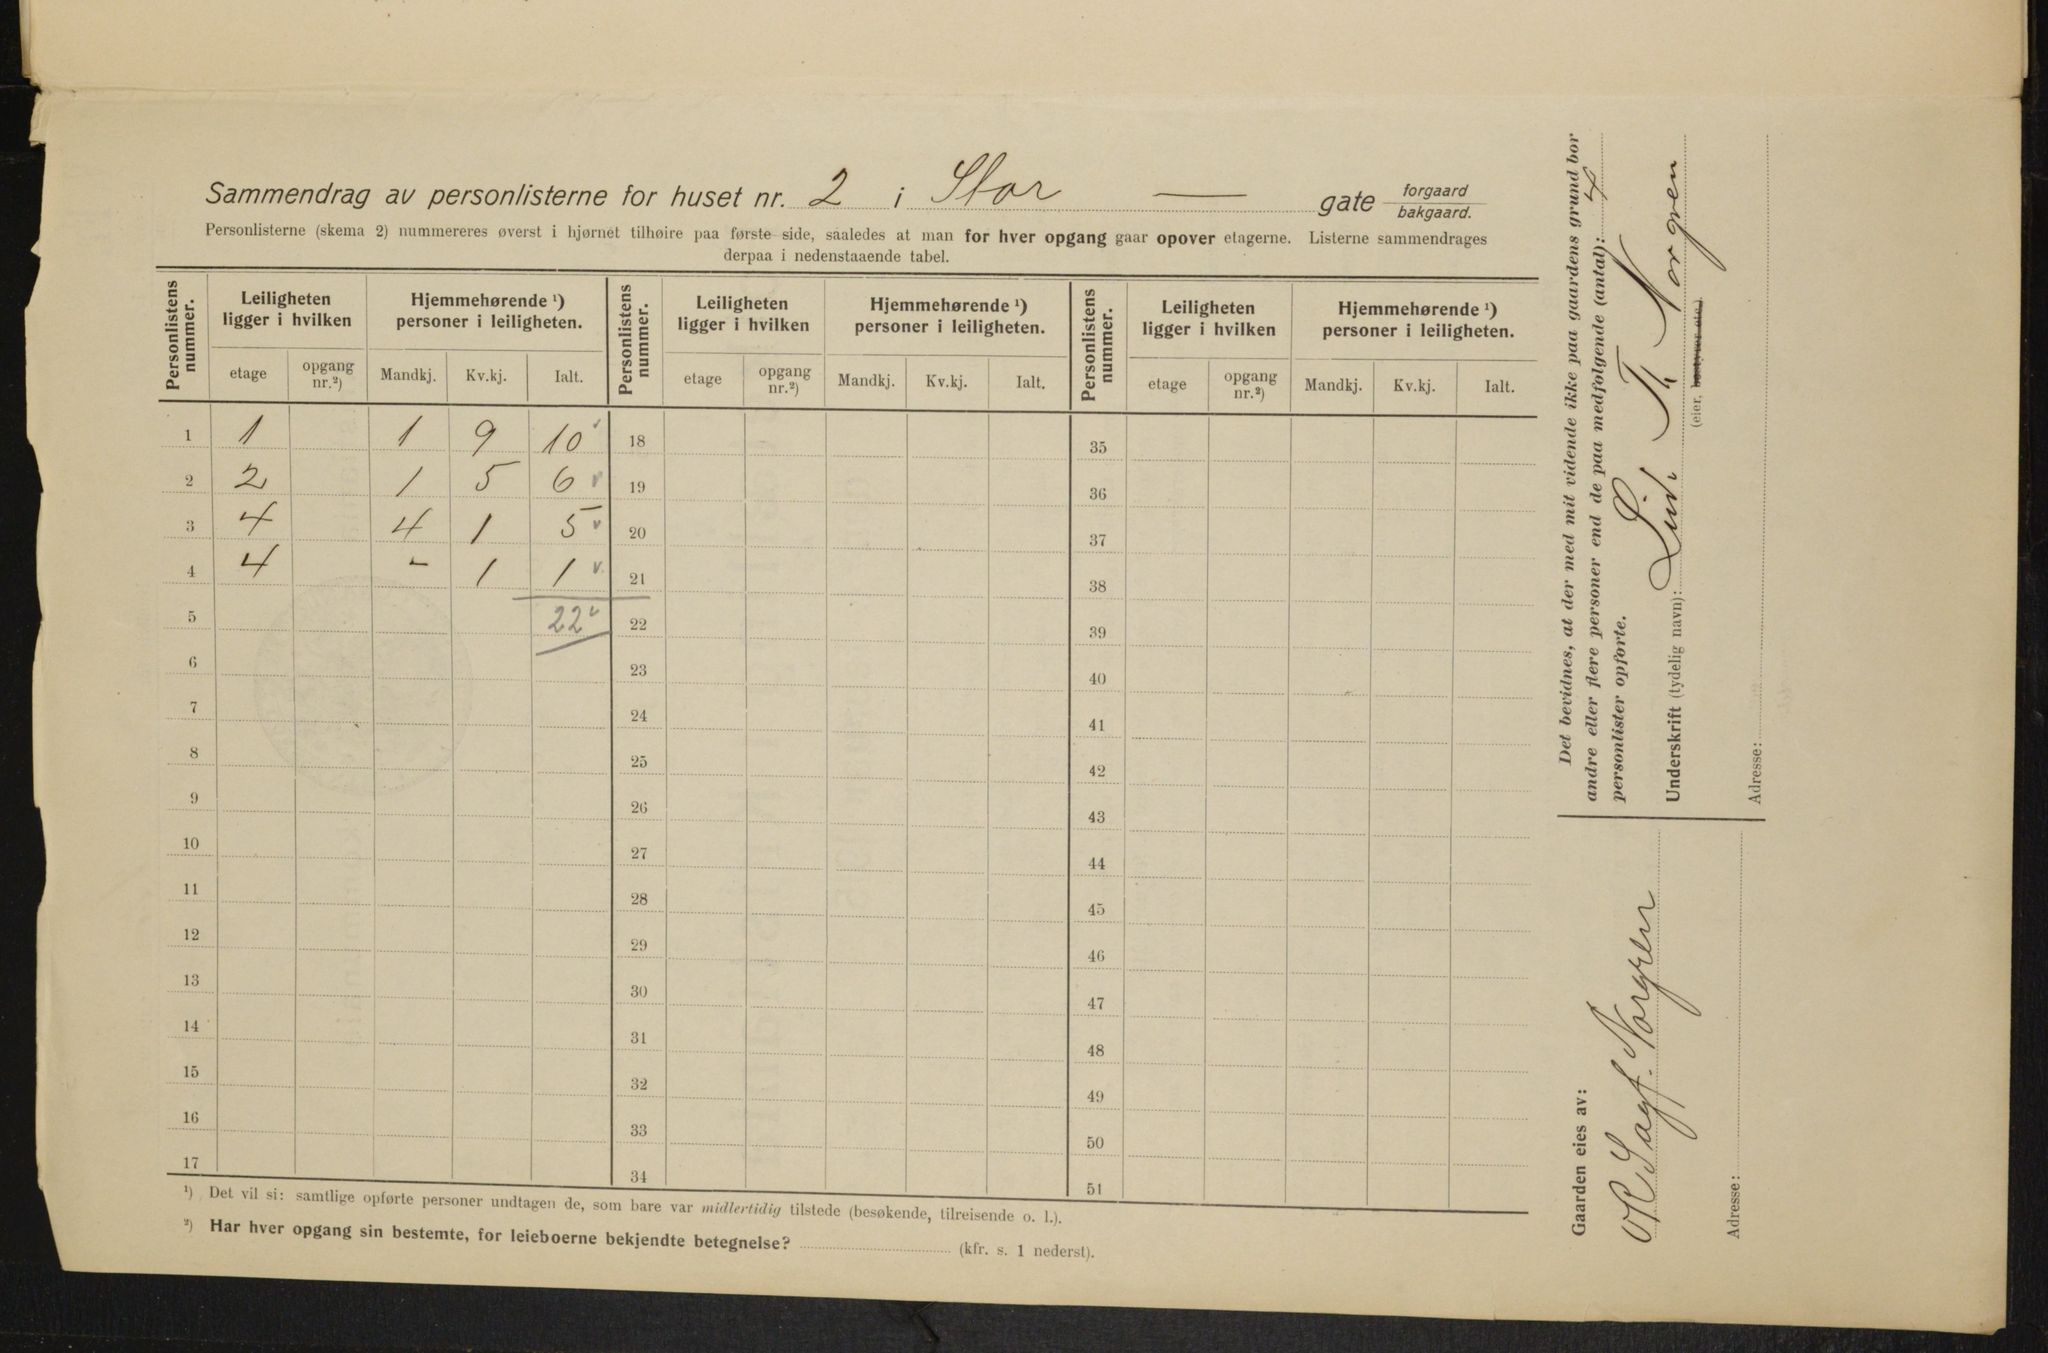 Sammendrag av personlisterne for huset nr. 2 i Stor — gate forgaard / bakgaard.
Personlisterne (skema 2) nummereres øverst i hjørnet tilhøire paa første side, saaledes at man for hver opgang gaar opover etagerne. Listerne sammendrages
derpaa i nedenstaaende tabel.
Personlistens nummer. Leiligheten ligger i hvilken Hjemmehørende ¹) personer i leiligheten. Personlistens nummer. Leiligheten ligger i hvilken Hjemmehørende ¹) personer i leiligheten. Personlistens nummer. Leiligheten ligger i hvilken Hjemmehørende ¹) personer i leiligheten.
etage opgang nr.²) Mandkj. Kv.kj. Ialt. etage opgang nr.²) Mandkj. Kv.kj. Ialt. etage opgang nr.²) Mandkj. Kv.kj. Ialt.
1 1 1 9 10 18 35
2 2 1 5 6 19 36
3 4 4 1 5 20 37
4 4 - 1 1 21 38
5 22 22 39
6 23 40
7 24 41
8 25 42
9 26 43
10 27 44
11 28 45
12 29 46
13 30 47
14 31 48
15 32 49
16 33 50
17 34 51
¹) Det vil si: samtlige opførte personer undtagen de, som bare var midlertidig tilstede (besøkende, tilreisende o. l.).
²) Har hver opgang sin bestemte, for leieboerne bekjendte betegnelse? (kfr. s. 1 nederst).
Det bevidnes, at der med mit vidende ikke paa gaardens grund bor
andre eller flere personer end de paa medfølgende (antal): 4
personlister opførte.
Underskrift (tydelig navn): Th. Norgren
(eier, bestyrer etc.)
Adresse:
Gaarden eies av:
Norgren
Adresse: